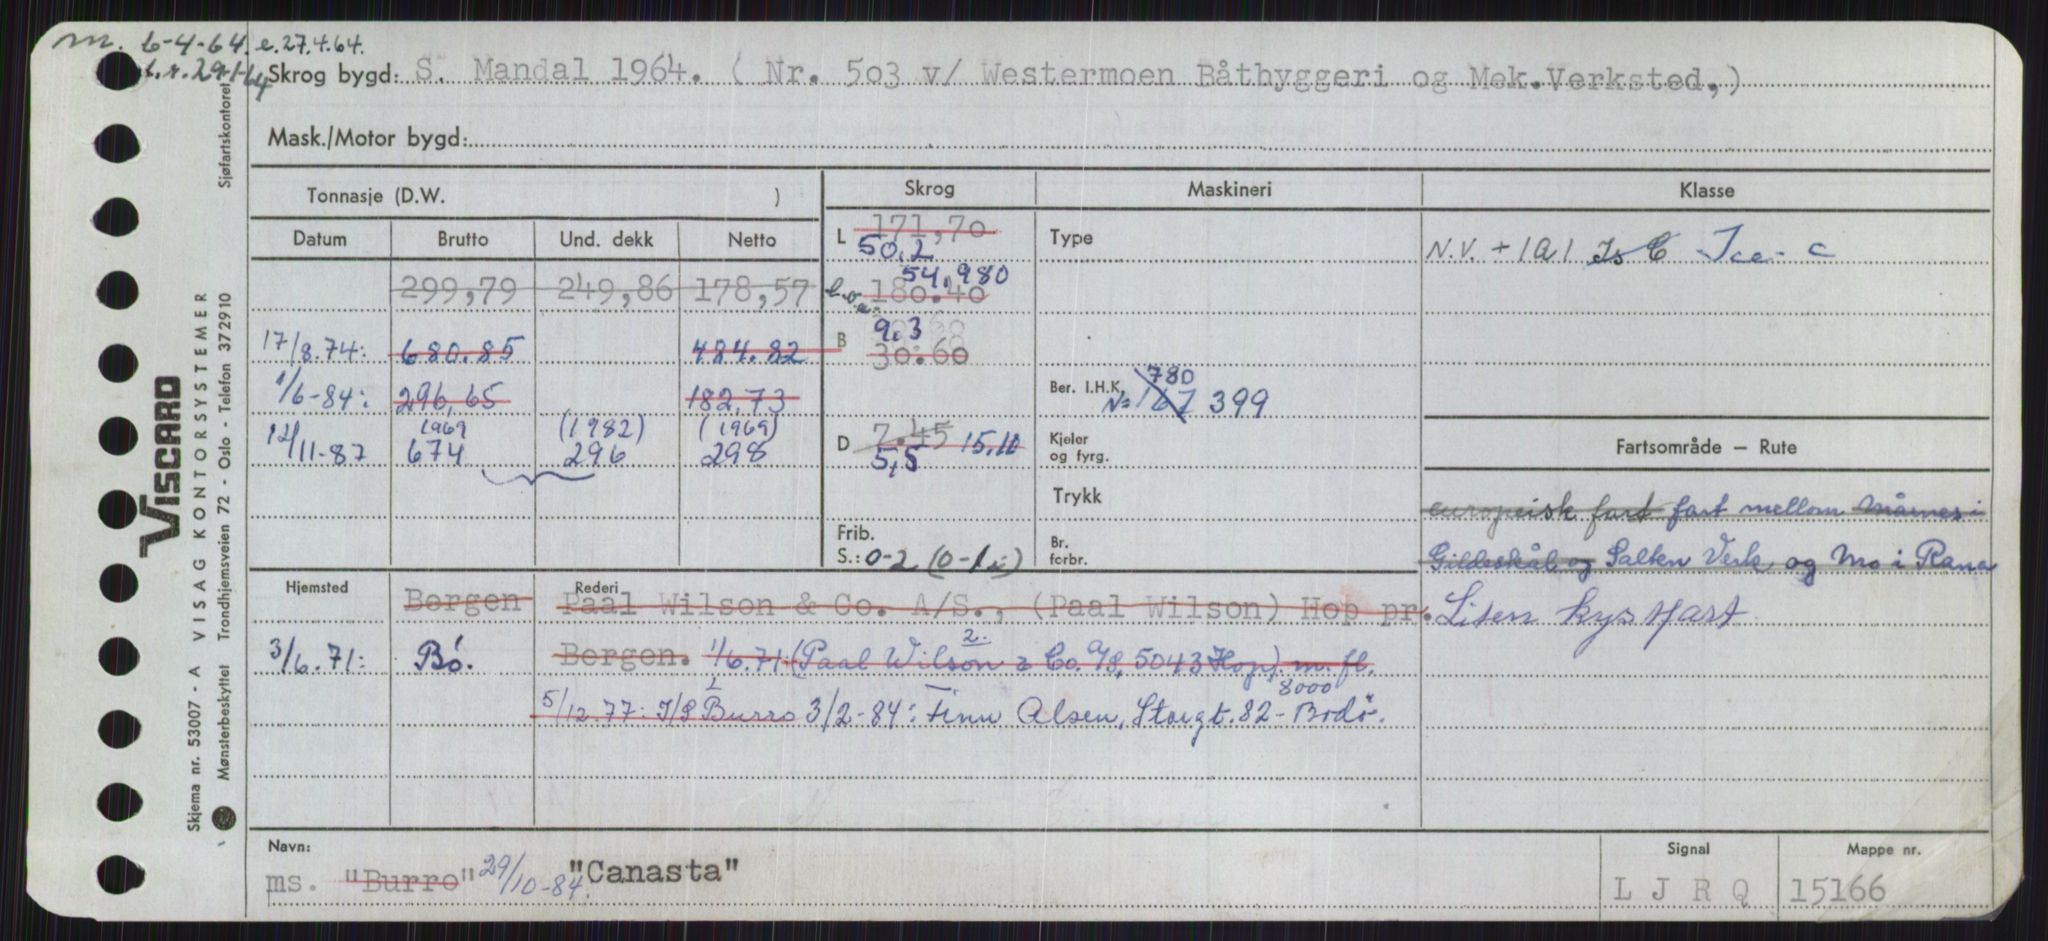 m. 6-4-64. e. 27.4.64.
Skrog bygd: S. Mandal 1964. ( Nr. 503 v/ Westermoen Båtbyggeri og Mek.Verksted,)
Mask./Motor bygd:
Tonnasje (D.W. )
Skrog
Maskineri
Klasse
Datum Brutto Und. dekk Netto
L 171,70
50,2
Type
N.V. + 1A1 Is C Ice-C
299,79 249,86 178,57
54,980
l.o.a. 180.40
17/8.74: 680.85 484.82
B 9,3
30.60
1/6-84: 296,65 182,73
Ber. I.H.K. 780
N= 167 399
12/11-87 1969 674 (1982) 296 (1969) 298
D 7.45 15,10
5,5
Kjeler og fyrg.
Fartsområde — Rute
Trykk
europeisk fart fart mellom Mårnes i
Frib.
S.: 0-2
Br. forbr.
Gildeskål og Salten Verk og Mo i Rana
Hjemsted
Rederi
Bergen Paal Wilson & Co. A/S., (Paal Wilson) Hop pr.
Liten kystfart
3/6.71: Bø. Bergen. 1/6.71 (Paal Wilson 2. & Co. A/S, 5043 Hop) m. fl.
8000
5/12.77: I/S Burro 3/2-84: Finn Olsen, Storgt. 82 - Bodø.
Navn:
Signal
Mappe nr.
ms. "Burro" 29/10-84. "Canasta"
L J R Q
15166
VISCARD
Skjema nr. 53007 - A VISAG KONTORSYSTEMER
Mønsterbeskyttet Trondhjemsveien 72 - Oslo - Telefon 372910 Sjøfartskontoret